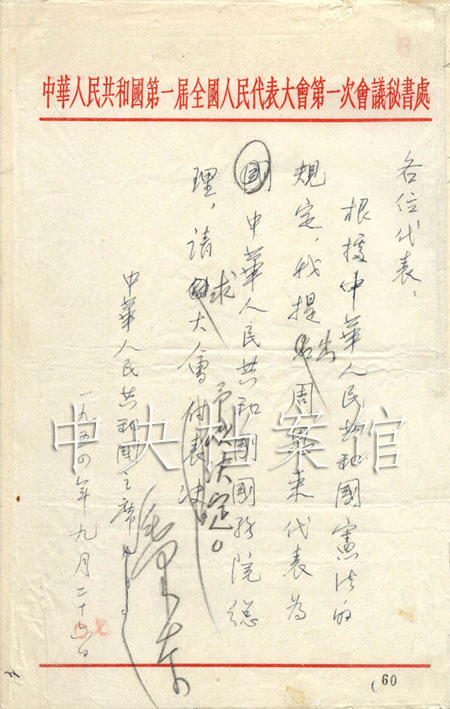 中華人民共和國第一届全國人民代表大會第一次會議秘書處
各位代表：
根據中華人民共和國憲法的
規定，我提出周恩来代表為
中華人民共和國國務院總
理，請求大會予以决定。
付表决
中華人民共和國主席
毛泽东
一九五四年九月二十七日
中央档案馆
60